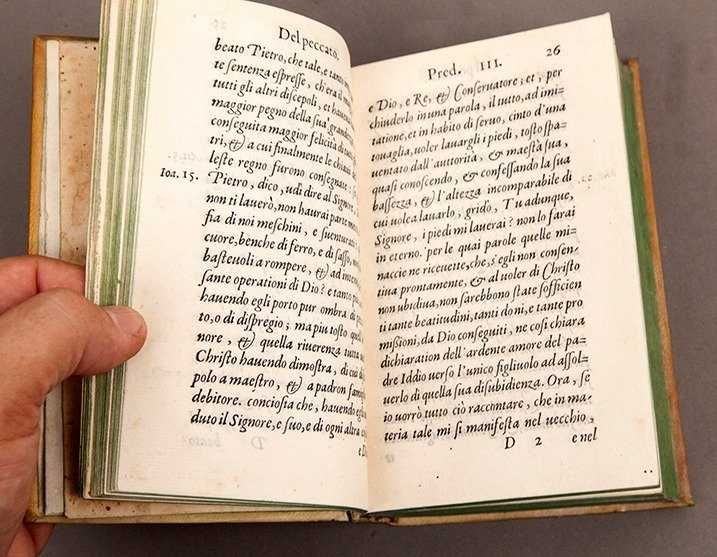 Del peccato.
beato Pietro, che tale, e tanto
te sentenza espresse, ch'era il
tutti gli altri discepoli, et haueua
maggior pegno della sua grandez
conseguita maggior felicità di
tri, & a cui finalmente le chiaui
leste regno furono consegnate:
Ioa. 15.
Pietro, dico, udì dire al Signore,
non ti lauerò, non haurai parte
fia di noi meschini, e suenturati
cuore, benche di ferro, e di sasso,
basteuoli a rompere, & ad inten
sante operationi di Dio? e tanto piu
hauendo egli porto pur ombra di
to, o di dispregio; ma piu tosto quell'
nore, & quella riuerenza tutta
Christo hauendo dimostra, di cui
polo a maestro, & a padron
debitore. conciosia che, hauendo
duto il Signore, e suo, e di ogni altra
Pred. III. 26
e Dio, e Re, & Conseruatore; et, per
chiuderlo in una parola, il tutto, ad imi=
tatione, et in habito di seruo, cinto d'una
touaglia, uoler lauargli i piedi, tosto spa=
uentato dall'auttorità, & maestà sua,
quasi conoscendo, & confessando la sua
bassezza, & l'altezza incomparabile di
cui uolea lauarlo, gridò, Tu adunque,
Signore, i piedi mi lauerai? non lo farai
in eterno. per le quai parole quelle mi=
naccie ne riceuette, che, s'egli non consen=
tiua prontamente, & al uoler di Christo
non ubidiua, non sarebbono state sofficien
ti tante beatitudini, tanti doni, e tante pro
missioni, da Dio conseguiti, ne così chiara
dichiaration dell'ardente amore del pa=
dre Iddio uerso l'unico figliuolo ad assol=
uerlo di quella sua disubidienza. Ora, se
io uorrò tutto ciò raccontare, che in ma=
teria tale mi si manifesta nel uecchio,
D 2 e nel